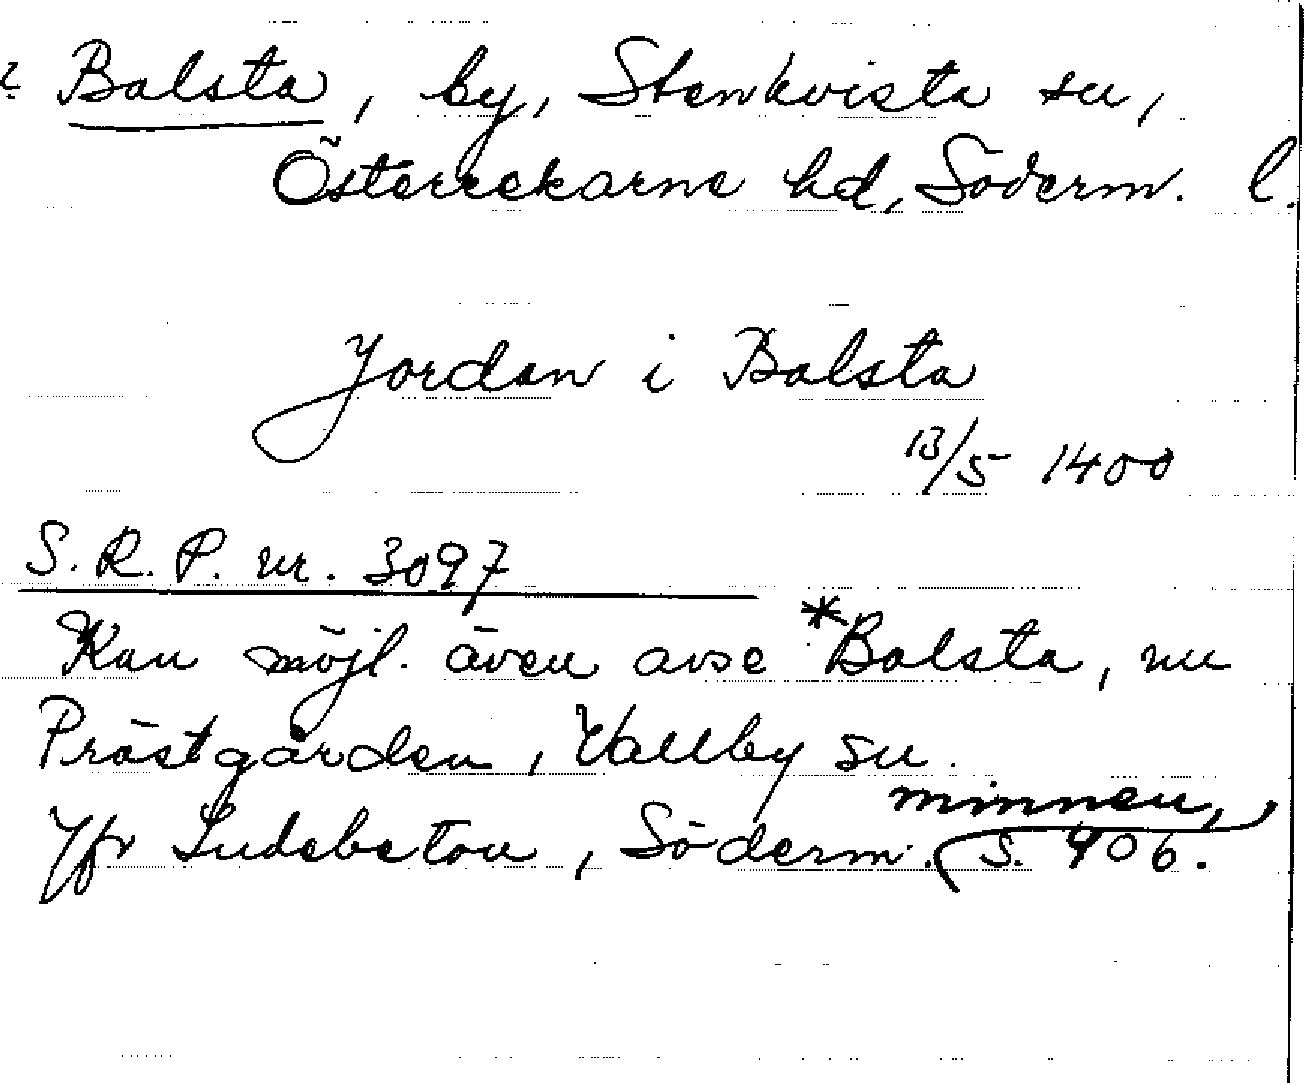 ? Balsta, by, Stenkvista sn,
Österrekarne hd, Söderm. l.
Jordan i Balsta
13/5 1400
S. R. P. nr. 3097
Kan möjl. även avse *Balsta, nu
Prästgården, Vallby sn.
Jfr Sudebeton, Söderm. minnen,
s. 406.